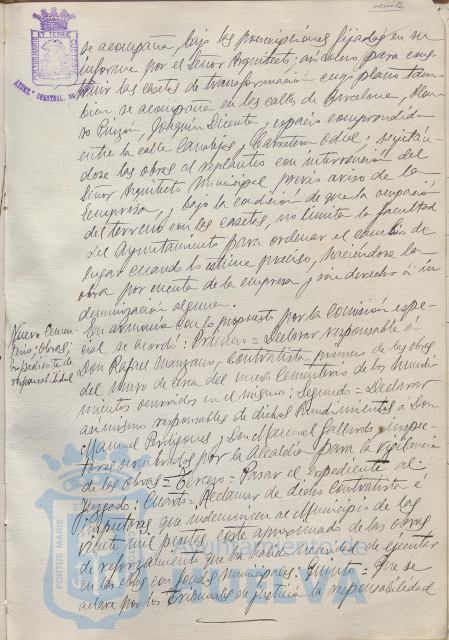 veinte
se acompaña, bajo las prescripciones fijadas en su
informe por el Señor Arquitecto; así como para cons-
truir las casetas de transformación cuyo plano tam-
bien se acompaña en las calles de Barcelona, Alon-
so Pinzón, Joaquín Dicenta, espacio comprendido
entre la calle Canalejas y Carretera Odiel; sujetán-
dose las obras al replanteo con intervención del
Señor Arquitecto Municipal, previo aviso de la
Empresa, y bajo la condición de que la ocupación
del terreno con las casetas, no limita la facultad
del Ayuntamiento para ordenar el cambio de
lugar cuando lo estime preciso, haciéndose la
obra por cuenta de la empresa y sin derecho a in-
demnización alguna.
Nuevo Cemen-
terio; obras;
expediente de
responsabilidad
En armonía con lo propuesto por la Comisión espe-
cial se acordó: Primero = Declarar responsable a
Don Rafael Manzano, contratista primero de las obras
del muro de cerca del nuevo Cementerio de los hundi-
mientos ocurridos en el mismo: Segundo = Declarar
asimismo responsables de dichos hundimientos a Don
Manuel Perdigones y Don Manuel Gallardo inspec-
tores nombrados por la Alcaldía para la vigilancia
de las obras = Tercero = Pasar el expediente al
Juzgado: Cuarto = Reclamar de dicho contratista é
inspectores que indemnicen al Municipio de las
veinte mil pesetas, coste aproximado de las obras
de reforzamiento que ha habido necesidad de ejecutar
en las obras con fondos municipales. Quinto = Que se
aclare por los Tribunales de justicia la responsabilidad
PORTUS MARIS ET TERRE CUSTODIA
Ayuntamiento de
HUELVA